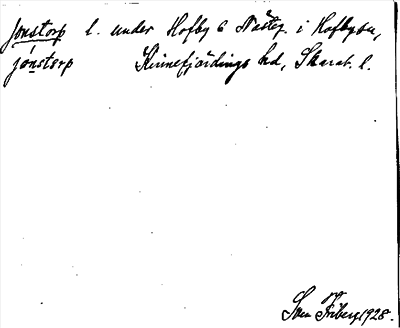 Jonstorp l. under Hofby 6 i Hofbysn,
jònstorp Kinnefjärdings hd, Skarab. l.
Sven Friberg 1928.